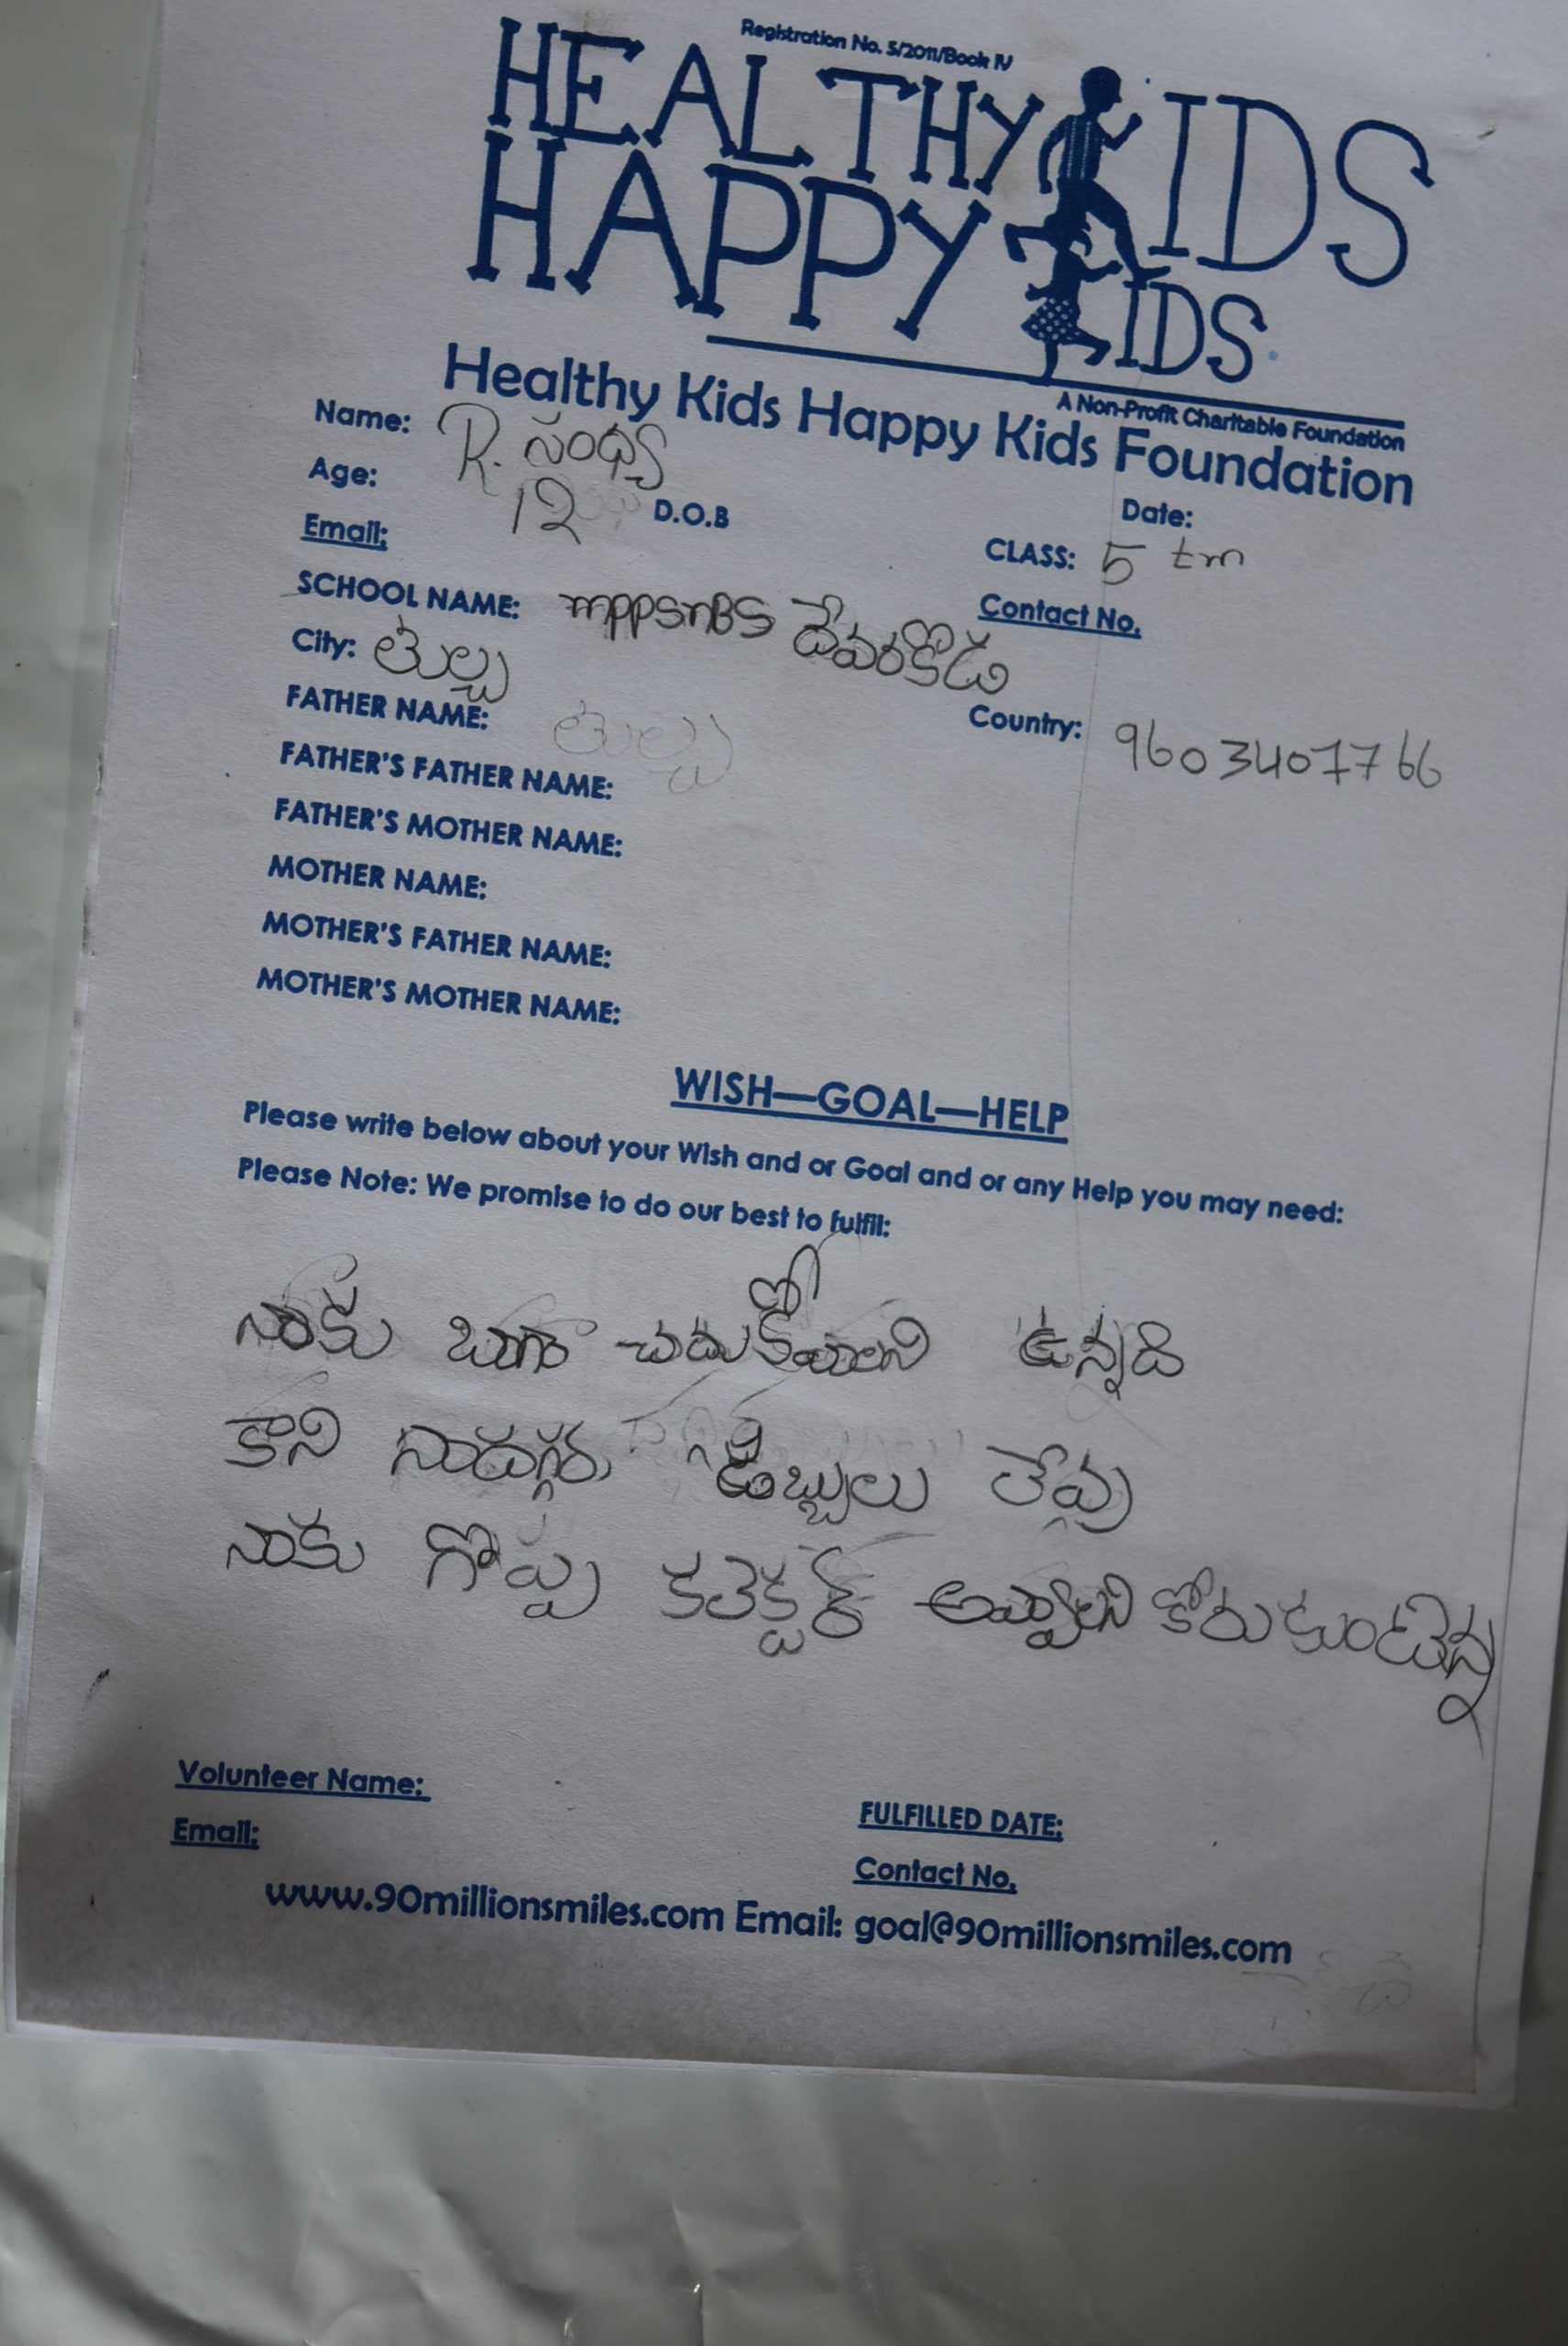 Registration No. 5/2011/Book IV
HEALTHY KIDS
HAPPY KIDS
A Non-Profit Charitable Foundation
Healthy Kids Happy Kids Foundation
Date:
Name: R. సంధ్య
Age: 12 D.O.B CLASS: 5 tm
Email: Contact No.
SCHOOL NAME: mppsnBS దేవరకొడు
City: తుల్చు Country: 9603407766
FATHER NAME: తుల్చు
FATHER'S FATHER NAME:
FATHER'S MOTHER NAME:
MOTHER NAME:
MOTHER'S FATHER NAME:
MOTHER'S MOTHER NAME:
WISH—GOAL—HELP
Please write below about your Wish and or Goal and or any Help you may need:
Please Note: We promise to do our best to fulfil:
నాకు బాగా చదుకోవాలని ఉన్నది
కాని నాదగ్గర డబ్బులు లేవు
నాకు గొప్ప కలెక్టర్ అవ్వాలని కోరుకుంటున్న
Volunteer Name: FULFILLED DATE:
Email: Contact No.
www.90millionsmiles.com Email: goal@90millionsmiles.com